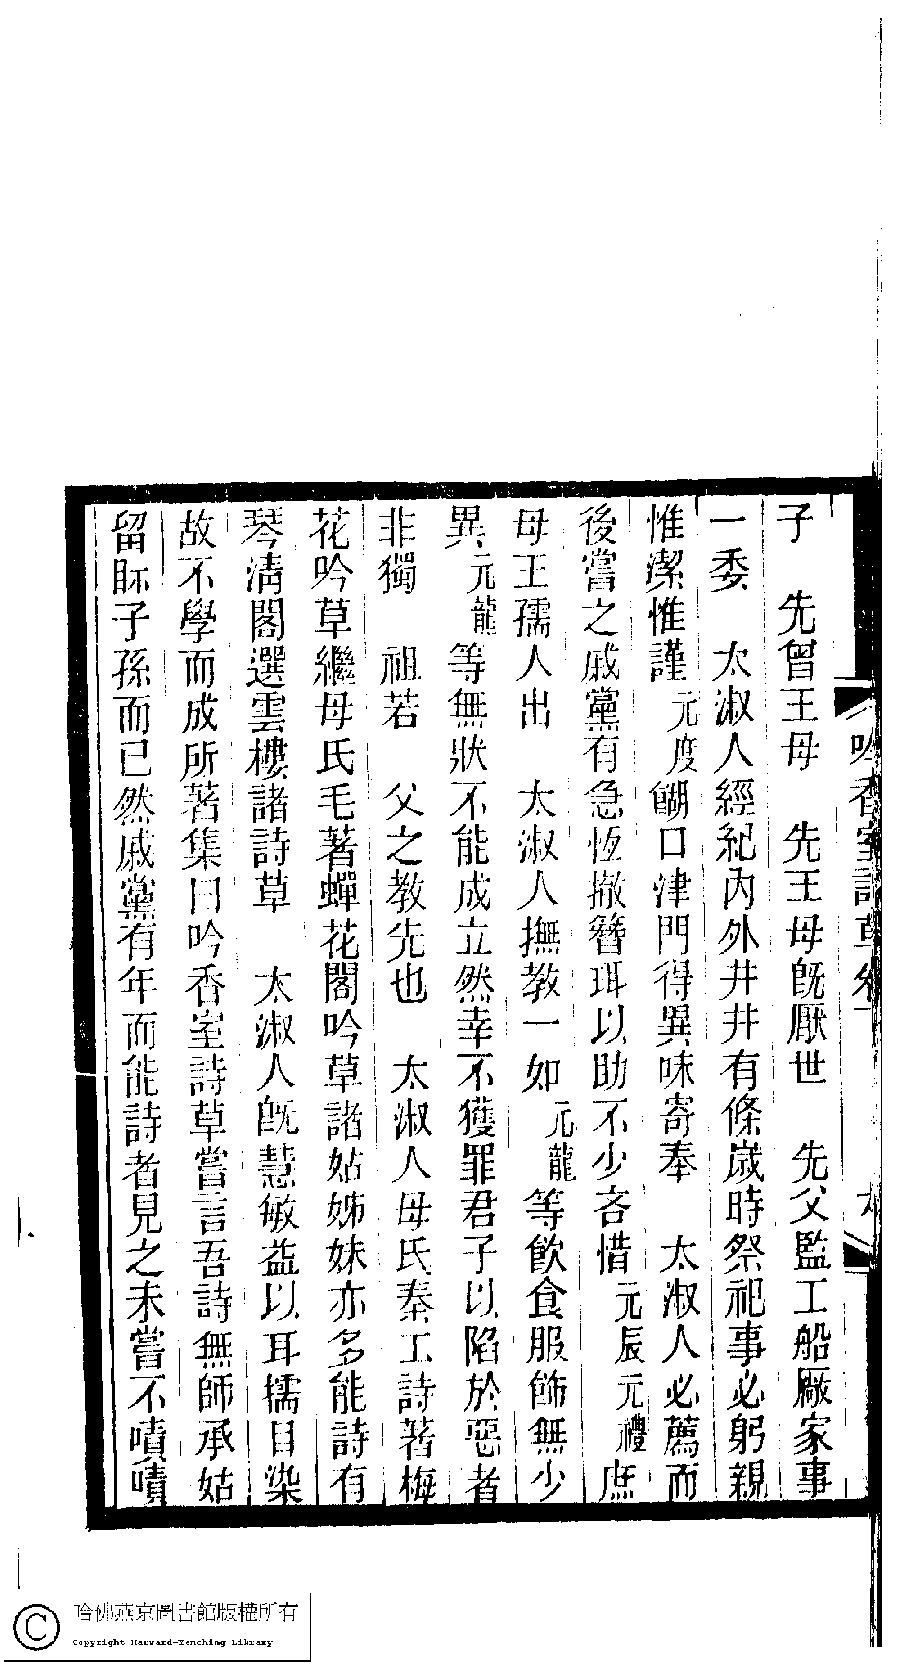 吟香室詩草卷下
子　先曾王母　先王母既厭世　先父監工船廠家事
一委　太淑人經紀內外井井有條歲時祭祀事必躬親
惟潔惟謹元度餬口津門得異味寄奉　太淑人必薦而
後嘗之戚黨有急恆撤簪珥以助不少吝惜元辰元禮庶
母王孺人出　太淑人撫教一如元龍等飲食服飾無少
異元龍等無狀不能成立然幸不獲罪君子以陷於惡者
非獨　祖若　父之教先也　太淑人母氏秦工詩著梅
花吟草繼母氏毛著蟬花閣吟草諸姑姊妹亦多能詩有
琴清閣選雲樓諸詩草　太淑人既慧敏益以耳擩目染
故不學而成所著集曰吟香室詩草嘗言吾詩無師承姑
留眎子孫而已然戚黨有年而能詩者見之未嘗不嘖嘖
哈佛燕京圖書館版權所有
Copyright Harvard-Yenching Library